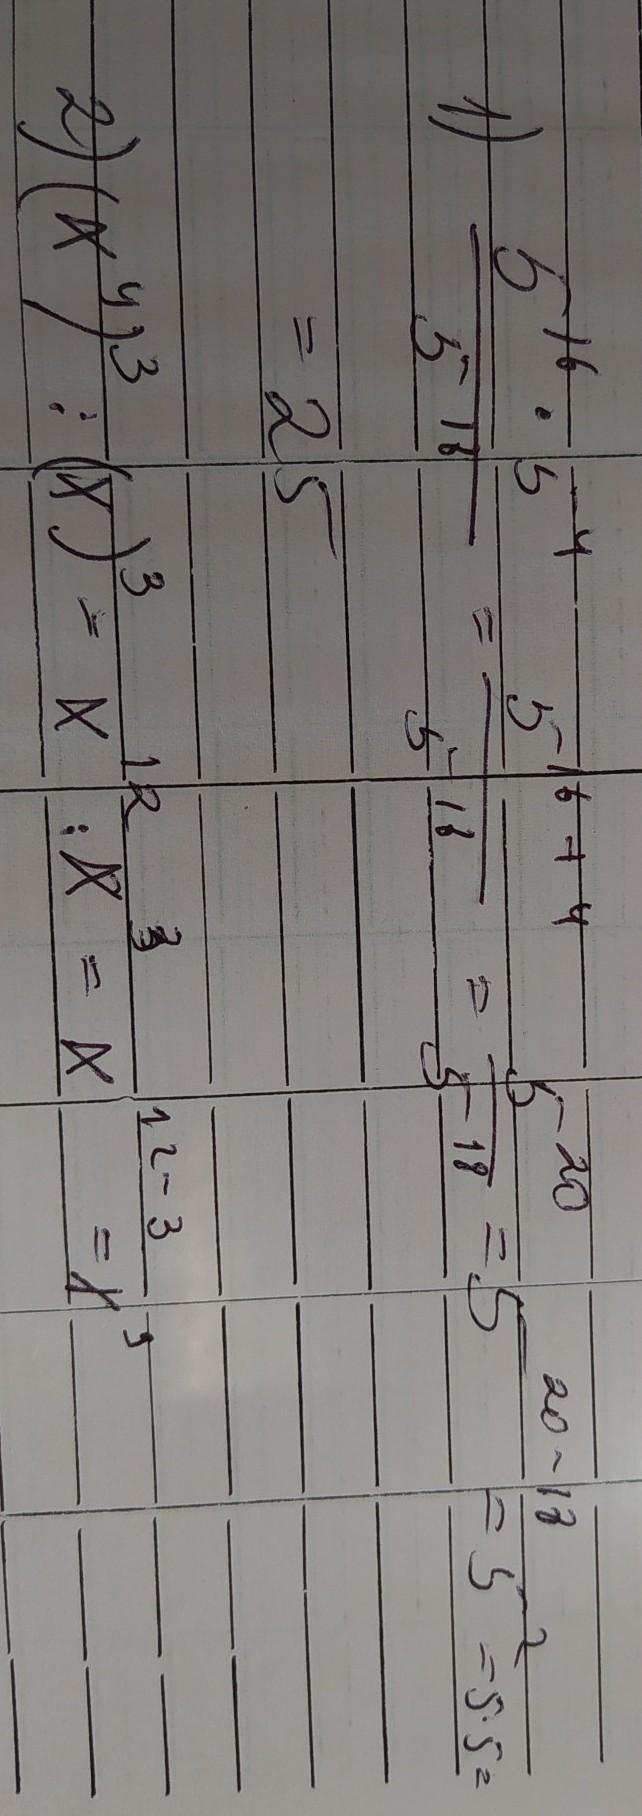 1) 5^-16 · 5^-4 / 5^-18 = 5^-16+4 / 5^-18 = 5^-20 / 5^-18 = 5^-20-18 = 5^-2 = 5·5=
= 25
2) (x^4)^3 : (x)^3 = x^12 : x^3 = x^12-3 = x^9